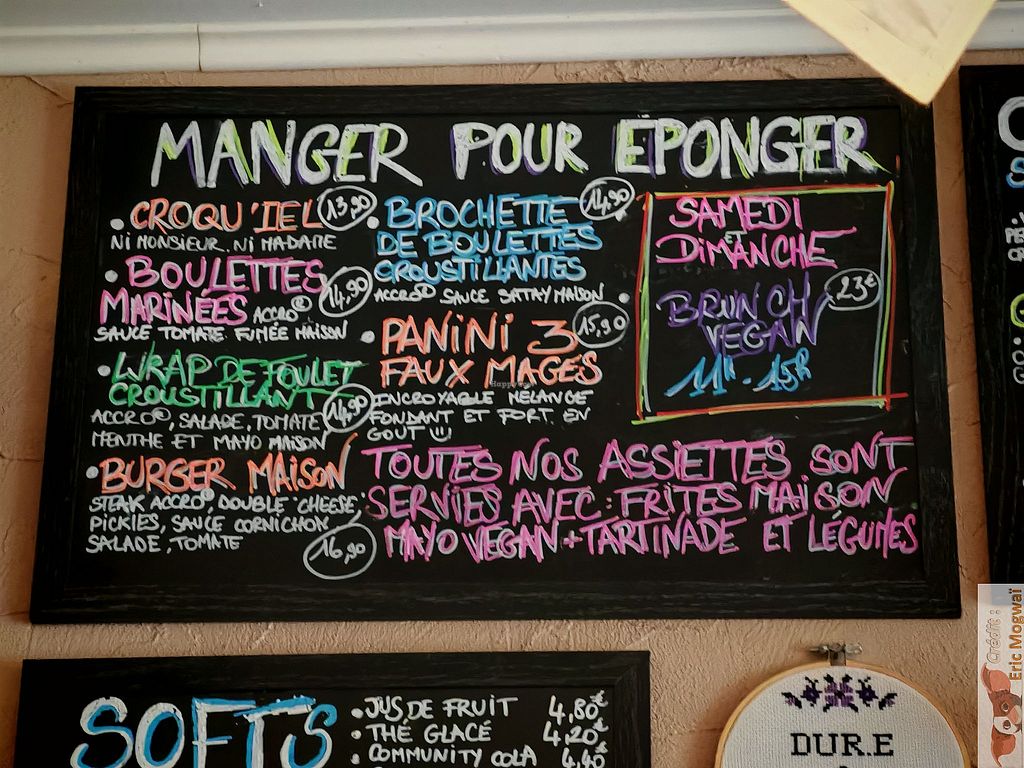 MANGER POUR EPONGER
• CROQU'IEL 13,90
NI MONSIEUR. NI MADAME
• BOULETTES
MARINÉES ACCRO® 14,90
SAUCE TOMATE FUMÉE MAISON
• WRAP DE FOULET
CROUSTILLANT 14,90
ACCRO®, SALADE, TOMATE
MENTHE ET MAYO MAISON
• BURGER MAISON
STEAK ACCRO®, DOUBLE CHEESE,
PICKLES, SAUCE CORNICHON
SALADE, TOMATE
16,90
• BROCHETTE 14,90
DE BOULETTES
CROUSTILLANTES
ACCRO® SAUCE SATAY MAISON
• PANINI 3 15,90
FAUX MAGES
INCROYABLE MELANGE
FONDANT ET FORT EN
GOUT
SAMEDI
ET
DIMANCHE
BRUNCH 23€
VEGAN
11H - 15H
TOUTES NOS ASSIETTES SONT
SERVIES AVEC: FRITES MAISON
MAYO VEGAN + TARTINADE ET LEGUMES
SOFTS
• JUS DE FRUIT 4,80€
• THE GLACÉ 4,20€
• COMMUNITY COLA 4,40
DUR.E
Crédit :
Eric Mogwaï
HappyCow